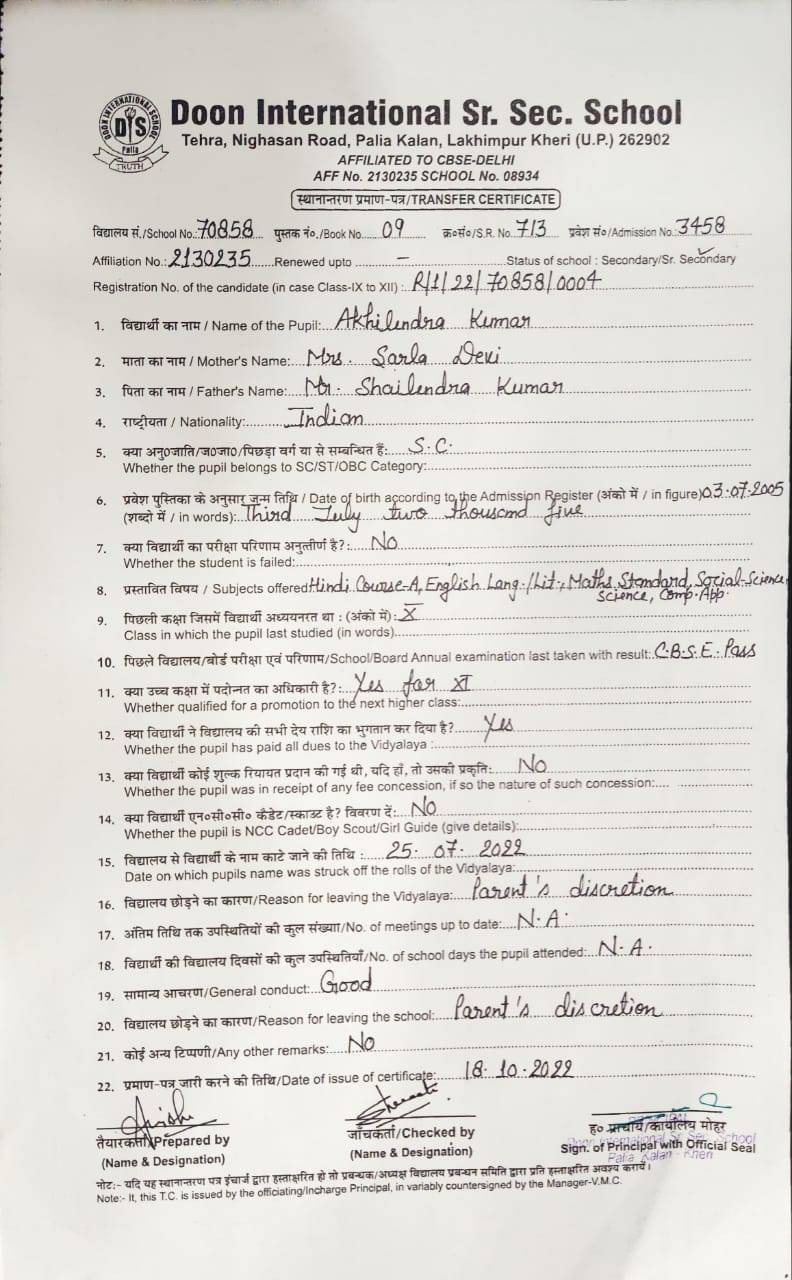 DOON INTERNATIONAL SCHOOL
DIS
Palia
TRUTH
Doon International Sr. Sec. School
Tehra, Nighasan Road, Palia Kalan, Lakhimpur Kheri (U.P.) 262902
AFFILIATED TO CBSE-DELHI
AFF No. 2130235 SCHOOL No. 08934
स्थानान्तरण प्रमाण-पत्र/TRANSFER CERTIFICATE
विद्यालय सं./School No.:70858 पुस्तक नं०./Book No.....09 क्र०सं०/S.R. No.713 प्रवेश सं०/Admission No.:3458
Affiliation No.:2130235.......Renewed upto ......–......Status of school : Secondary/Sr. Secondary ✓
Registration No. of the candidate (in case Class-IX to XII) :..R/1/22/70858/0004
1. विद्यार्थी का नाम / Name of the Pupil:...Akhilendra Kumar
2. माता का नाम / Mother's Name:...Mrs. Sarla Devi
3. पिता का नाम / Father's Name:...Mr. Shailendra Kumar
4. राष्ट्रीयता / Nationality:..........Indian
5. क्या अनु०जाति/ज०जा०/पिछड़ा वर्ग या से सम्बन्धित हैं:....S.C.
Whether the pupil belongs to SC/ST/OBC Category:
6. प्रवेश पुस्तिका के अनुसार जन्म तिथि / Date of birth according to the Admission Register (अंको में / in figure)03.07.2005
(शब्दो में / in words):..Third July two thousand five
7. क्या विद्यार्थी का परीक्षा परिणाम अनुत्तीर्ण है?:....No
Whether the student is failed:
8. प्रस्तावित विषय / Subjects offered Hindi Course-A, English Lang./Lit., Maths Standard, Social-Science,
Science, Comp. App.
9. पिछली कक्षा जिसमें विद्यार्थी अध्ययनरत था : (अंको में):..X
Class in which the pupil last studied (in words)
10. पिछले विद्यालय/बोर्ड परीक्षा एवं परिणाम/School/Board Annual examination last taken with result:.C.B.S.E. Pass
11. क्या उच्च कक्षा में पदोन्नत का अधिकारी है?:...Yes for XI
Whether qualified for a promotion to the next higher class:
12. क्या विद्यार्थी ने विद्यालय की सभी देय राशि का भुगतान कर दिया है?......Yes
Whether the pupil has paid all dues to the Vidyalaya :
13. क्या विद्यार्थी कोई शुल्क रियायत प्रदान की गई थी, यदि हाँ, तो उसकी प्रकृति:.....No
Whether the pupil was in receipt of any fee concession, if so the nature of such concession:....
14. क्या विद्यार्थी एन०सी०सी० कैडेट/स्काउट है? विवरण दें:...No
Whether the pupil is NCC Cadet/Boy Scout/Girl Guide (give details):
15. विद्यालय से विद्यार्थी के नाम काटे जाने की तिथि :....25.07.2022
Date on which pupils name was struck off the rolls of the Vidyalaya:
16. विद्यालय छोड़ने का कारण/Reason for leaving the Vidyalaya:....Parent's discretion
17. अंतिम तिथि तक उपस्थितियों की कुल संख्या/No. of meetings up to date:....N.A.
18. विद्यार्थी की विद्यालय दिवसों की कुल उपस्थितियाँ/No. of school days the pupil attended:..N.A.
19. सामान्य आचरण/General conduct:..Good
20. विद्यालय छोड़ने का कारण/Reason for leaving the school:....Parent's discretion
21. कोई अन्य टिप्पणी/Any other remarks:....No
22. प्रमाण-पत्र जारी करने की तिथि/Date of issue of certificate:......18.10.2022
तैयारकर्ता/Prepared by
(Name & Designation)
जाँचकर्ता/Checked by
(Name & Designation)
ह० प्राचार्य/कार्यालय मोहर
Sign. of Principal with Official Seal
Doon International Sr. Sec. School
Palia Kalan - Kheri
नोट:- यदि यह स्थानान्तरण पत्र इंचार्ज द्वारा हस्ताक्षरित हो तो प्रबन्धक/अध्यक्ष विद्यालय प्रबन्धन समिति द्वारा प्रति हस्ताक्षरित अवश्य करायें।
Note:- It, this T.C. is issued by the officiating/Incharge Principal, in variably countersigned by the Manager-V.M.C.